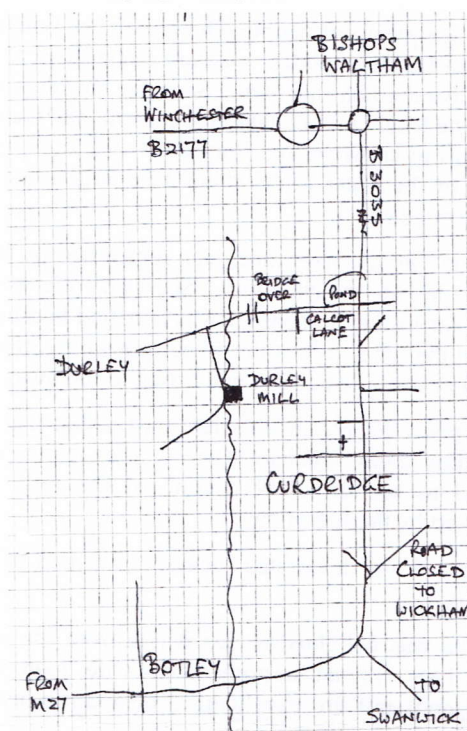 BISHOPS
WALTHAM
FROM
WINCHESTER
B2177
B 3035
BRIDGE
OVER
POND
CALCOT
LANE
DURLEY
DURLEY
MILL
CURDRIDGE
ROAD
CLOSED
TO
WICKHAM
BOTLEY
FROM
M27
TO
SWANWICK